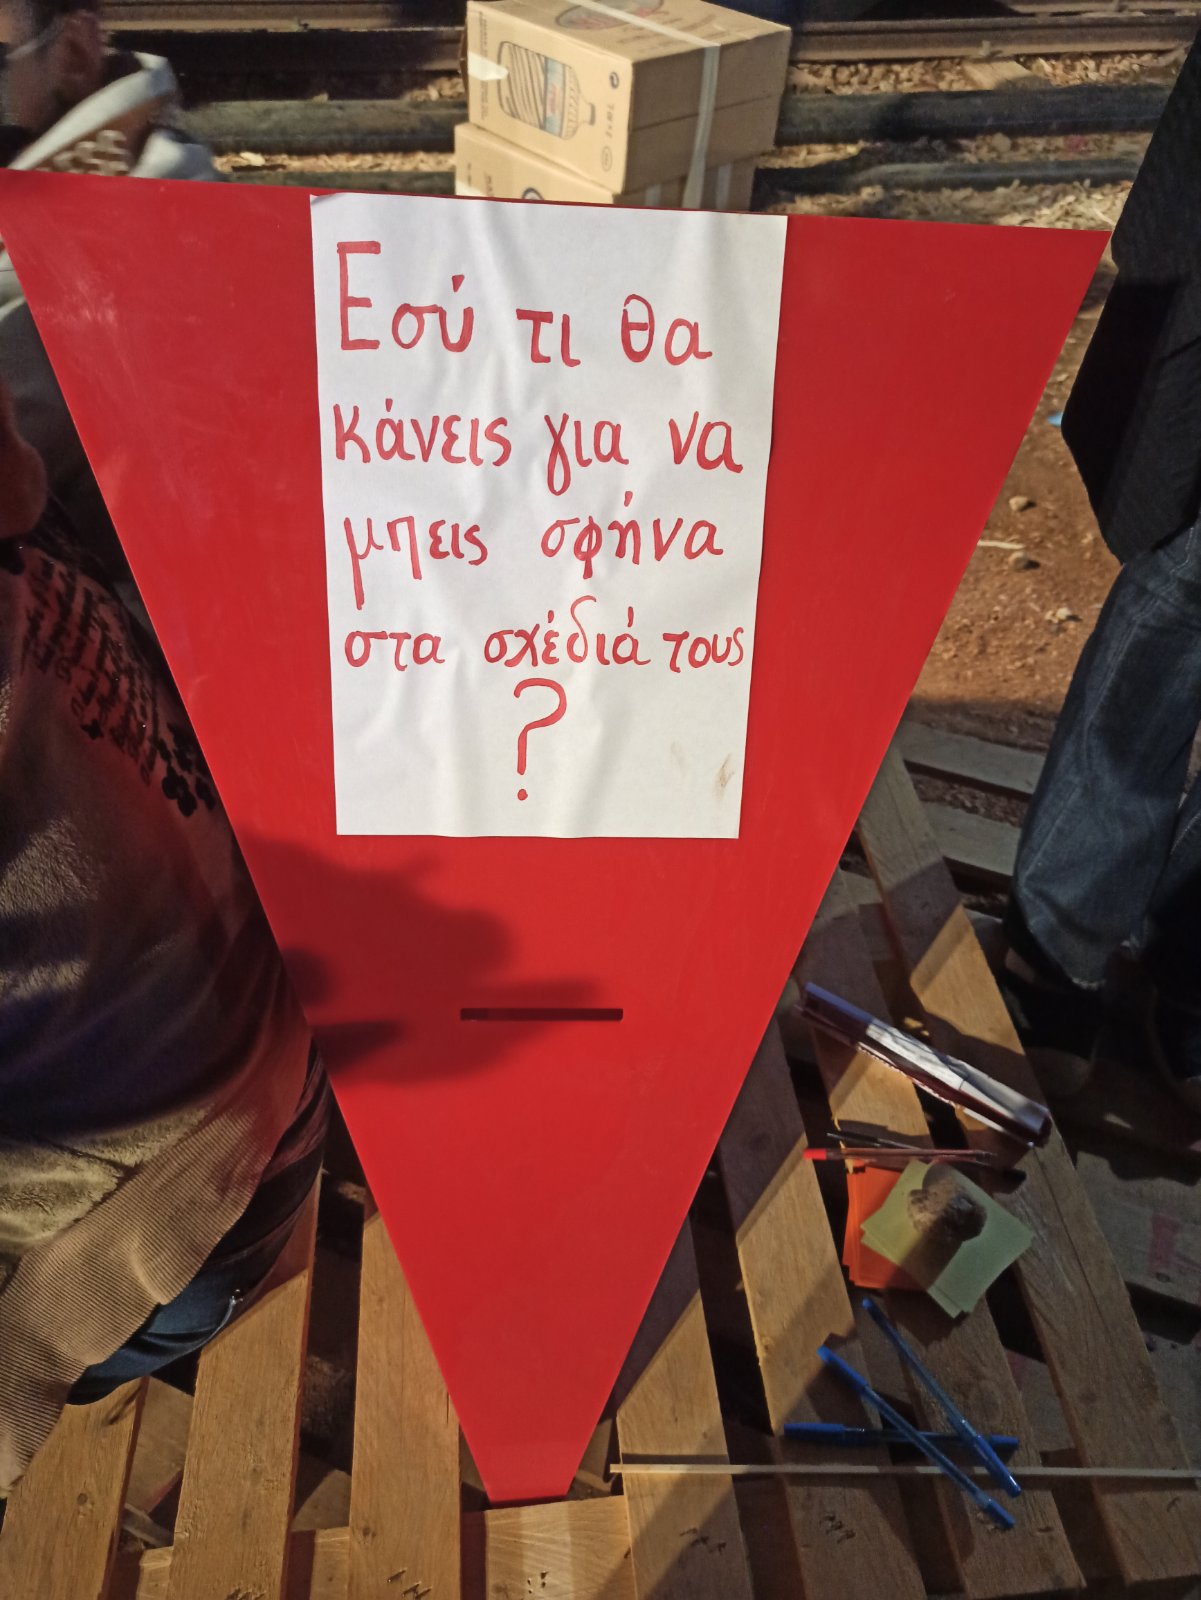 Εσύ τι θα
κάνεις για να
μπεις σφήνα
στα σχέδιά τους
?